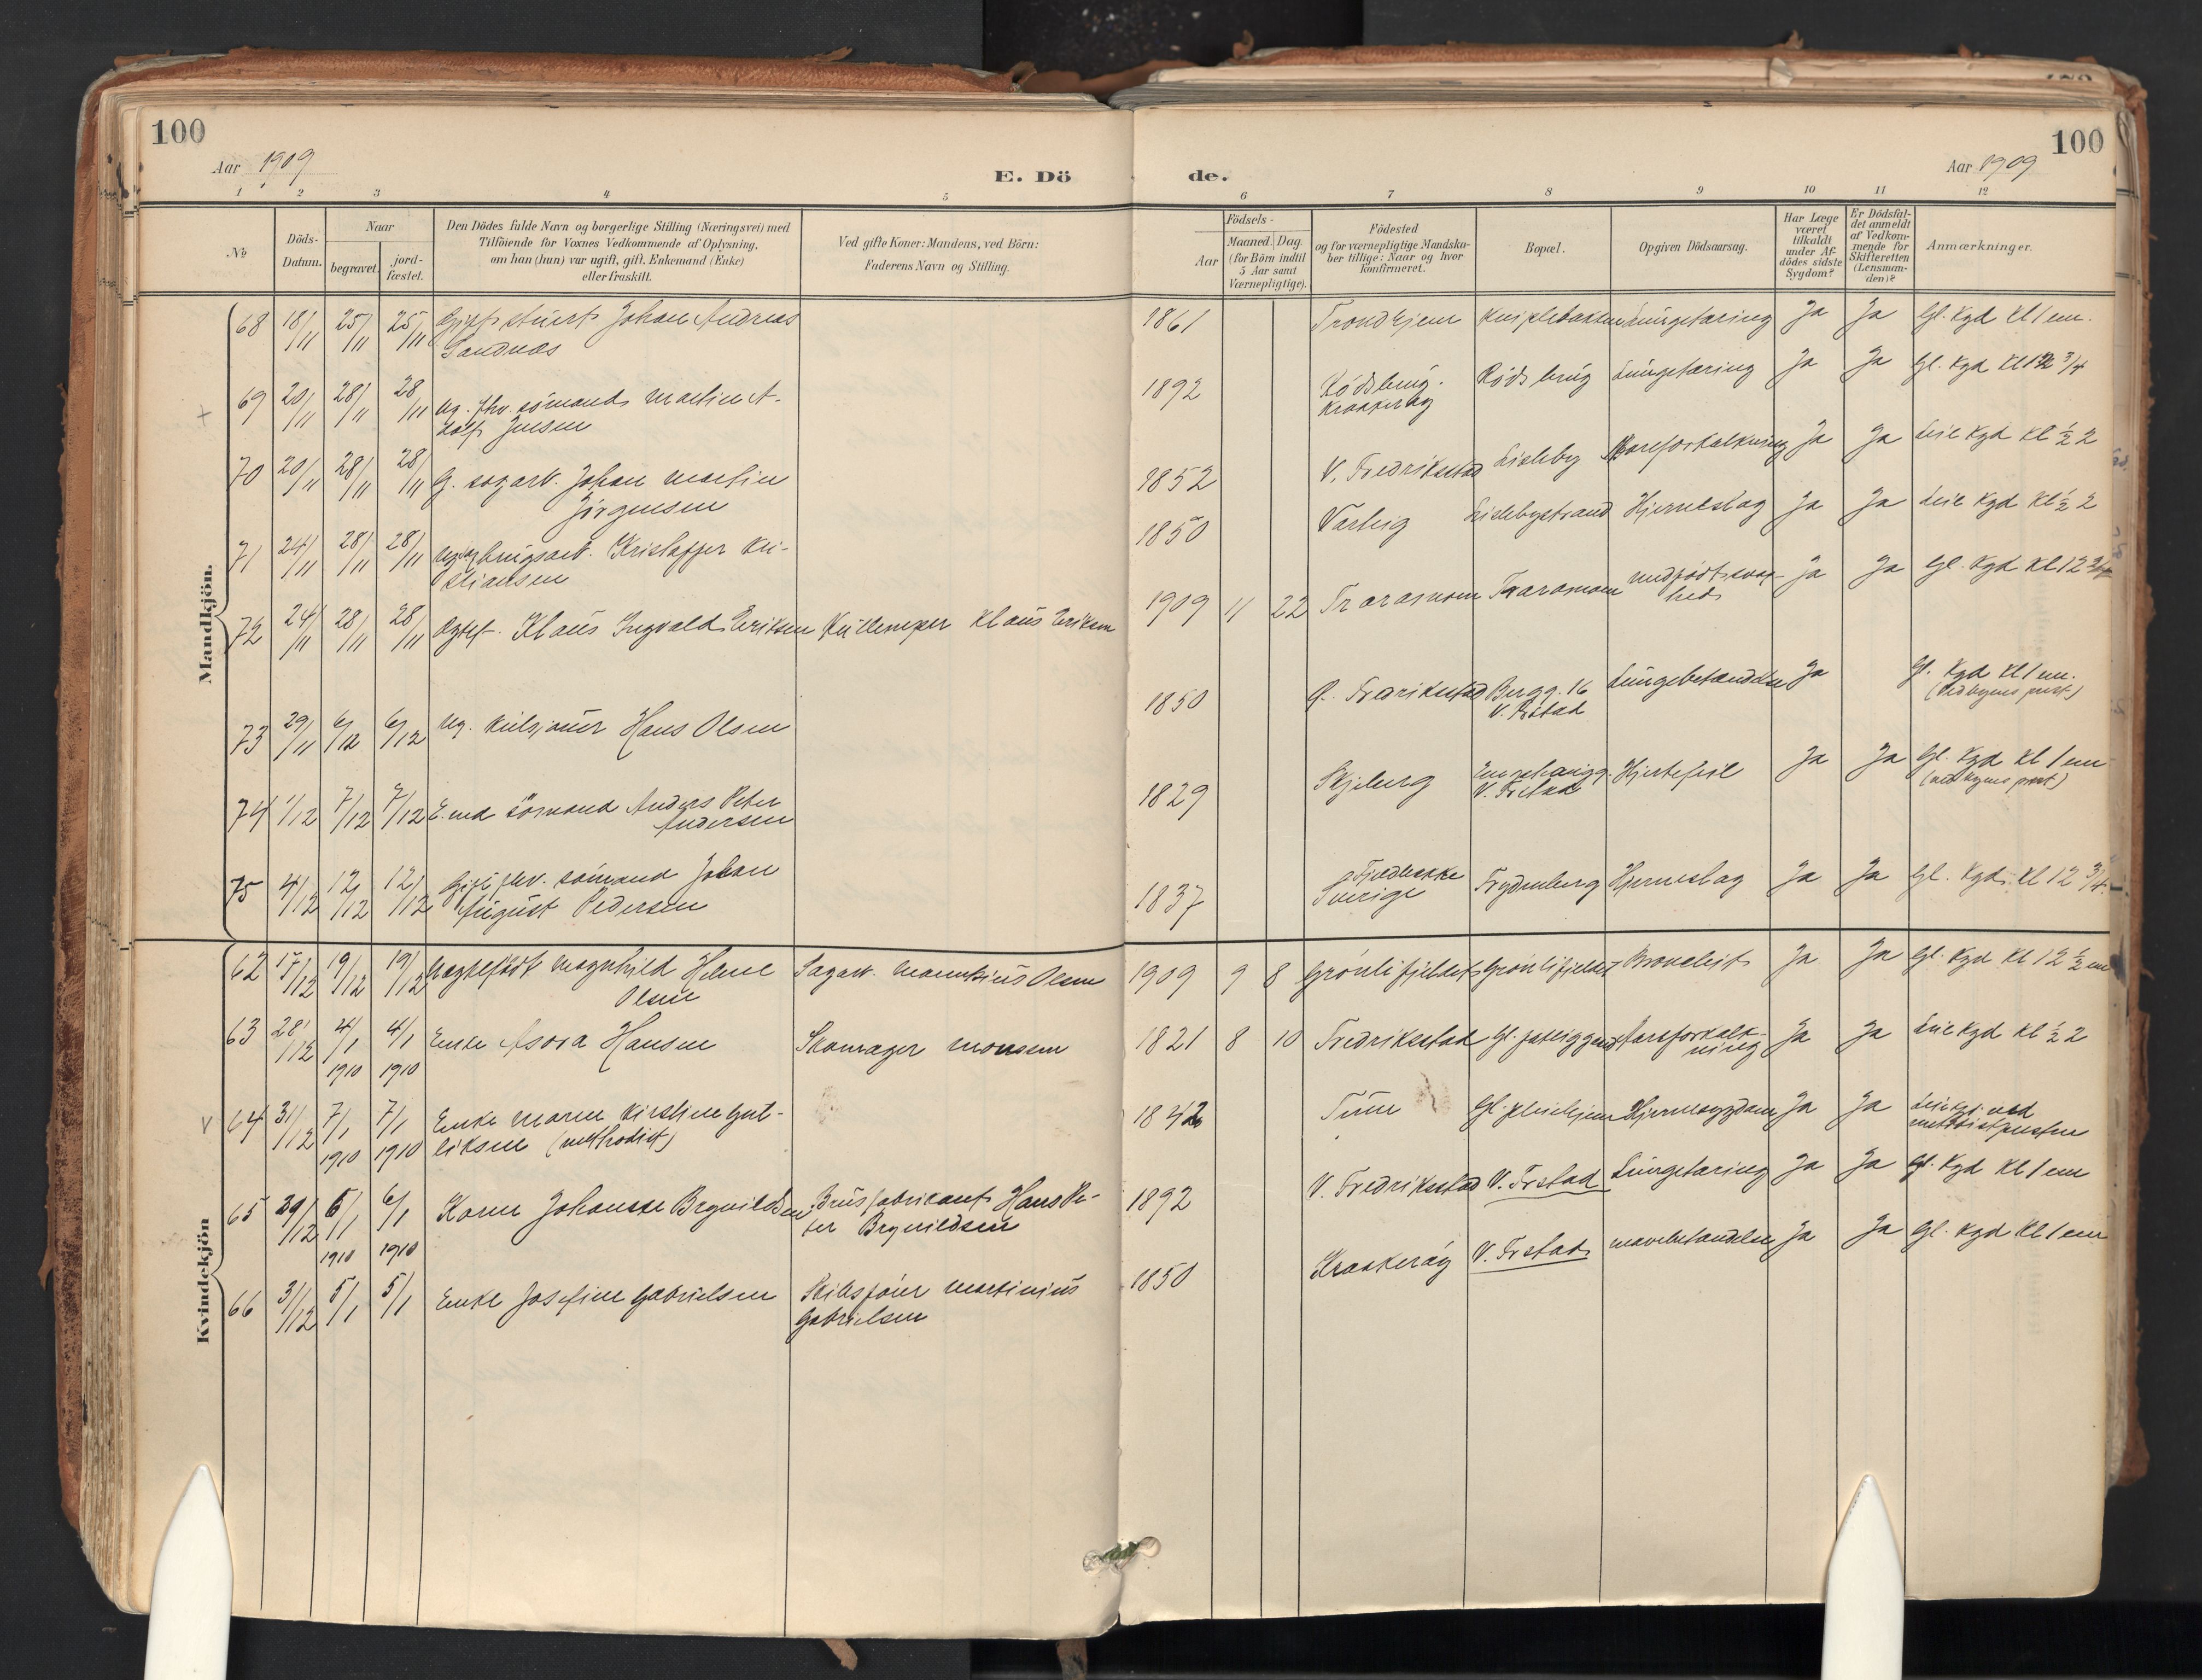 100
Aar 1909
E. Dö
1 2 3 4 5
No
Döds-
Datum.
Naar
begravet.
jord-
fæstet.
Den Dödes fulde Navn og borgerlige Stilling (Næringsvei) med
Tilföiende for Voxnes Vedkommende af Oplysning,
om han (hun) var ugift, gift, Enkemand (Enke)
eller fraskilt.
Ved gifte Koner: Mandens, ved Börn:
Faderens Navn og Stilling.
Mandkjön.
68 18/11 25/11 25/11 Gift stuert Johan Andreas
Sandnæs
69 20/11 28/11 28/11 Ug. fhv. sömand Martin A-
dolf Jensen
70 20/11 28/11 28/11 G. sagarb. Johan Martin
Jörgensen
71 24/11 28/11 28/11 brugsarb. Kristoffer Kri-
stiansen
72 24/11 28/11 28/11 Ægtef. Klaus Ingvald Eriksen Kullemper Klaus Eriksen
73 29/11 6/12 6/12 Ug. Hans Olsen
74 1/12 7/12 7/12 E.md sömand Anders Peter
Andersen
75 4/12 12/12 12/12 Gift fhv. sömand Johan
August Pedersen
Kvindekjön
62 17/12 19/12 19/12 Ægtefödt Magnhild Helene Sagarb. Mauritius Olsen
Olsen
63 28/12 4/1 4/1 Enke Asora Hansen Skomager Monsen
1910 1910
64 31/12 7/1 7/1 Enke Maren Kirstine Gul-
1910 1910 liksen (methodist)
65 29/12 6/1 6/1 Karen Johanne Brynildsen Brusfabrikant Hans Pe-
1910 1910 ter Brynildsen
66 31/12 5/1 5/1 Enke Josefine Gabrielsen Skibsförer Martinius
Gabrielsen
100
Aar 1909
de.
6 7 8 9 10 11 12
Födsels-
Aar
Maaned. Dag.
(for Börn indtil
5 Aar samt
Værnepligtige).
Födested
og for værnepligtige Mandska-
ber tillige: Naar og hvor
konfirmeret.
Bopæl.
Opgiven Dödsaarsag.
Har Læge
været
tilkaldt
under Af-
dödes sidste
Sygdom?
Er Dödsfal-
det anmeldt
af Vedkom-
mende for
Skifteretten
(Lensman-
den)?
Anmærkninger.
1861 Trondhjem Kniplebakken Lungetæring Ja Ja Gl. Kgd Kl 1 em.
1892 Rödsbrug. Röds brug Lungetæring Ja Ja Gl. Kgd Kl 12 3/4
Kraakeröy
1852 V. Fredrikstad Lisleby Aareforkalkning Ja Ja Leie Kgd Kl ½ 2
1850 Varteig Lislebystrand Hjerneslag Ja Ja Leie Kgd Kl ½ 2
1909 11 22 Traramoen Traramoen Medfödt svag- Ja Ja Gl. Kgd Kl 12 3/4
hed
1850 Gl. Fredrikstad Bergg. 16 Lungebetændelse Ja Gl. Kgd Kl 1 em.
V. Frstad (Ved byens prest)
1829 Skjeberg Enghaugg. Hjertefeil Ja Ja Gl. Kgd Kl 1 em
V. Frstad (ved byens prest)
1837 Fjeldbakke Frydenberg Hjerneslag Ja Ja Gl. Kgd. Kl 12 3/4
Sverige
1909 9 8 Grönlifjeldet Grönlifjeldet Bronchit Ja Ja Gl. Kgd Kl 12 ½ em
1821 8 10 Fredrikstad Gl. fattiggaard Aareforkalk- Ja Ja Leie Kgd Kl ½ 2
ning
1842 Tune Gl. pleiehjem Hjernesygdom Ja Ja Leie Kgd. ved
methodistpresten
1892 V. Fredrikstad V. Frstad Lungetæring Ja Ja Gl. Kgd Kl 1 em
1850 Kraakeröy V. Frstad Mavebetændelse Ja Ja Gl. Kgd Kl 1 em